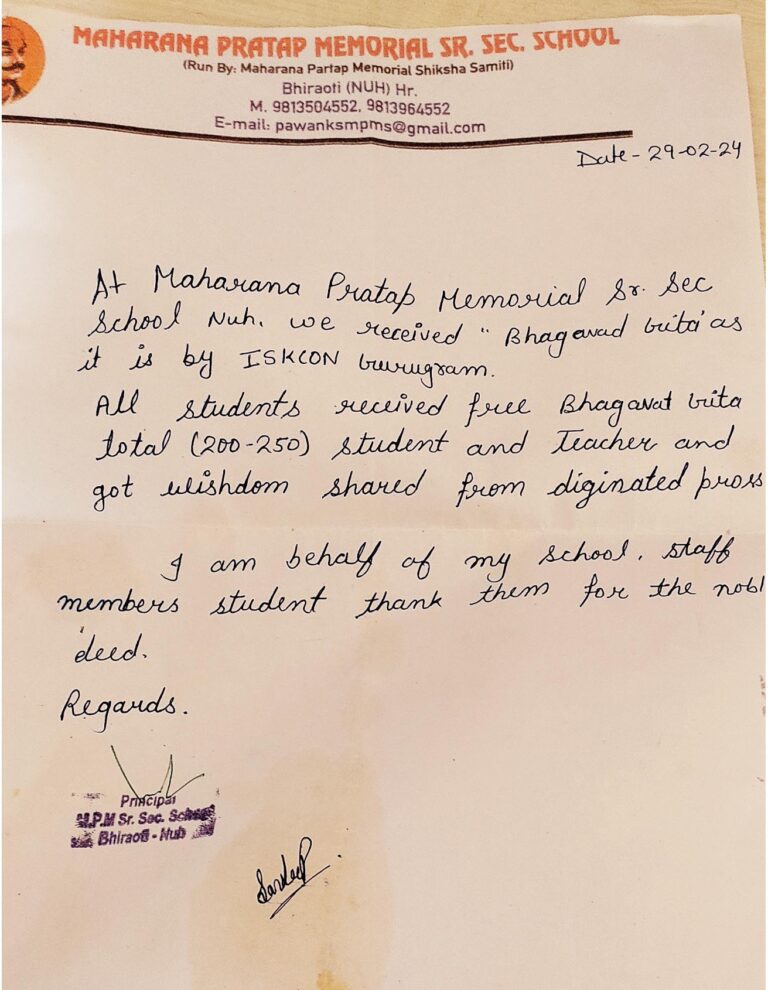 MAHARANA PRATAP MEMORIAL SR. SEC. SCHOOL
(Run By: Maharana Partap Memorial Shiksha Samiti)
Bhiraoti (NUH) Hr.
M. 9813504552, 9813964552
E-mail: pawanksmpms@gmail.com
Date - 29-02-24
At Maharana Pratap Memorial Sr. Sec
School Nuh. we received " Bhagavad Gita' as
it is by ISKCON Gurugram.
All students received free Bhagavat Gita
total (200-250) student and Teacher and
got wishdom shared from diginated pross
I am behalf of my school. staff
members student thank them for the nobl
deed.
Regards.
Principal
M.P.M Sr. Sec. School
Bhiraoti - Nuh